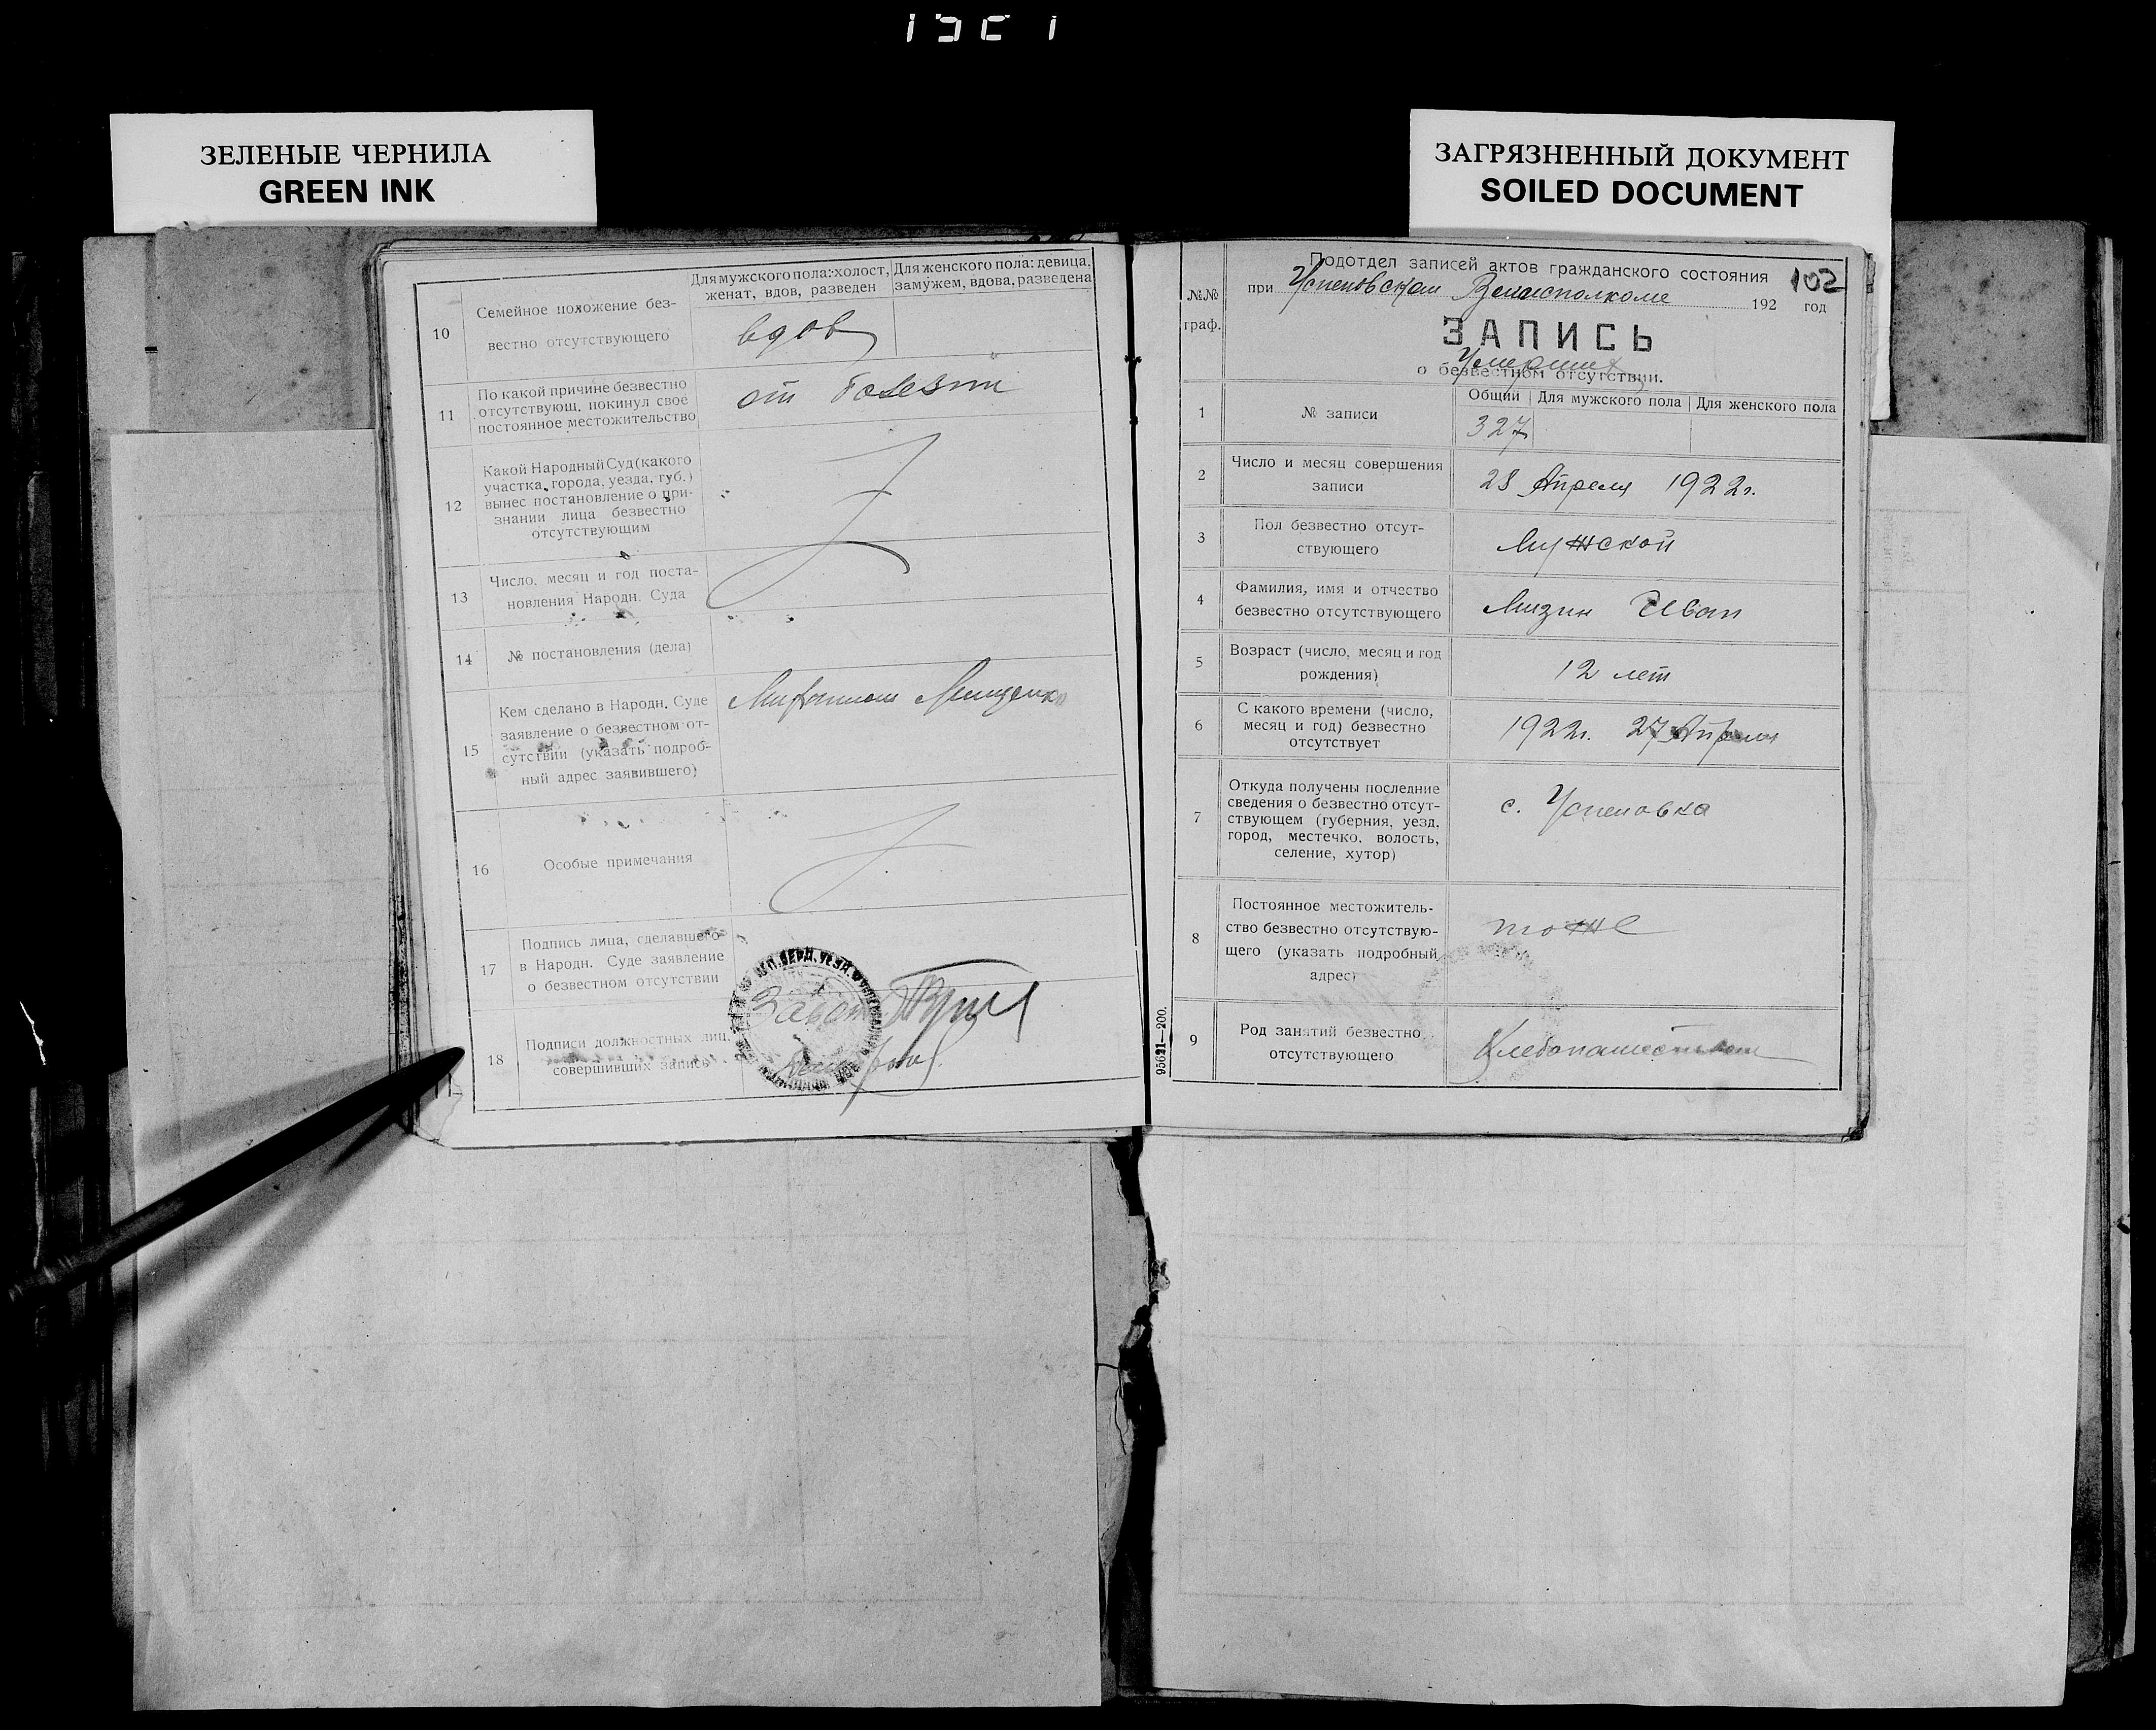 ЗЕЛЕНЫЕ ЧЕРНИЛА
GREEN INK
ЗАГРЯЗНЕННЫЙ ДОКУМЕНТ
SOILED DOCUMENT
Для мужского пола: холост,
женат, вдов, разведен
Для женского пола: девица,
замужем, вдова, разведена
10
Семейное положение без-
вестно отсутствующего
вдов
11
По какой причине безвестно
отсутствующ. покинул свое
постоянное местожительство
от болезни
12
Какой Народный Суд (какого
участка, города, уезда, губ.)
вынес постановление о при-
знании лица безвестно
отсутствующим
13
Число, месяц и год поста-
новления Народн. Суда
14
№ постановления (дела)
15
Кем сделано в Народн. Суде
заявление о безвестном от-
сутствии (указать подроб-
ный адрес заявившего)
Мищенко
16
Особые примечания
17
Подпись лица, сделавшего
в Народн. Суде заявление
о безвестном отсутствии
18
Подписи должностных лиц,
совершивших запись
102
№№
граф.
Подотдел записей актов гражданского состояния
при Успеновском Волисполкоме 192 год
ЗАПИСЬ
Умерших
о безвестном отсутствии.
1
№ записи
Общий
Для мужского пола
Для женского пола
327
2
Число и месяц совершения
записи
28 Апреля 1922г.
3
Пол безвестно отсут-
ствующего
Мужской
4
Фамилия, имя и отчество
безвестно отсутствующего
Мизин Иван
5
Возраст (число, месяц и год
рождения)
12 лет
6
С какого времени (число,
месяц и год) безвестно
отсутствует
1922г. 27 Апреля
7
Откуда получены последние
сведения о безвестно отсут-
ствующем (губерния, уезд,
город, местечко, волость,
селение, хутор)
с. Успеновка
8
Постоянное местожитель-
ство безвестно отсутствую-
щего (указать подробный
адрес)
тоже
9
Род занятий безвестно
отсутствующего
Хлебопашеством
95621—200.